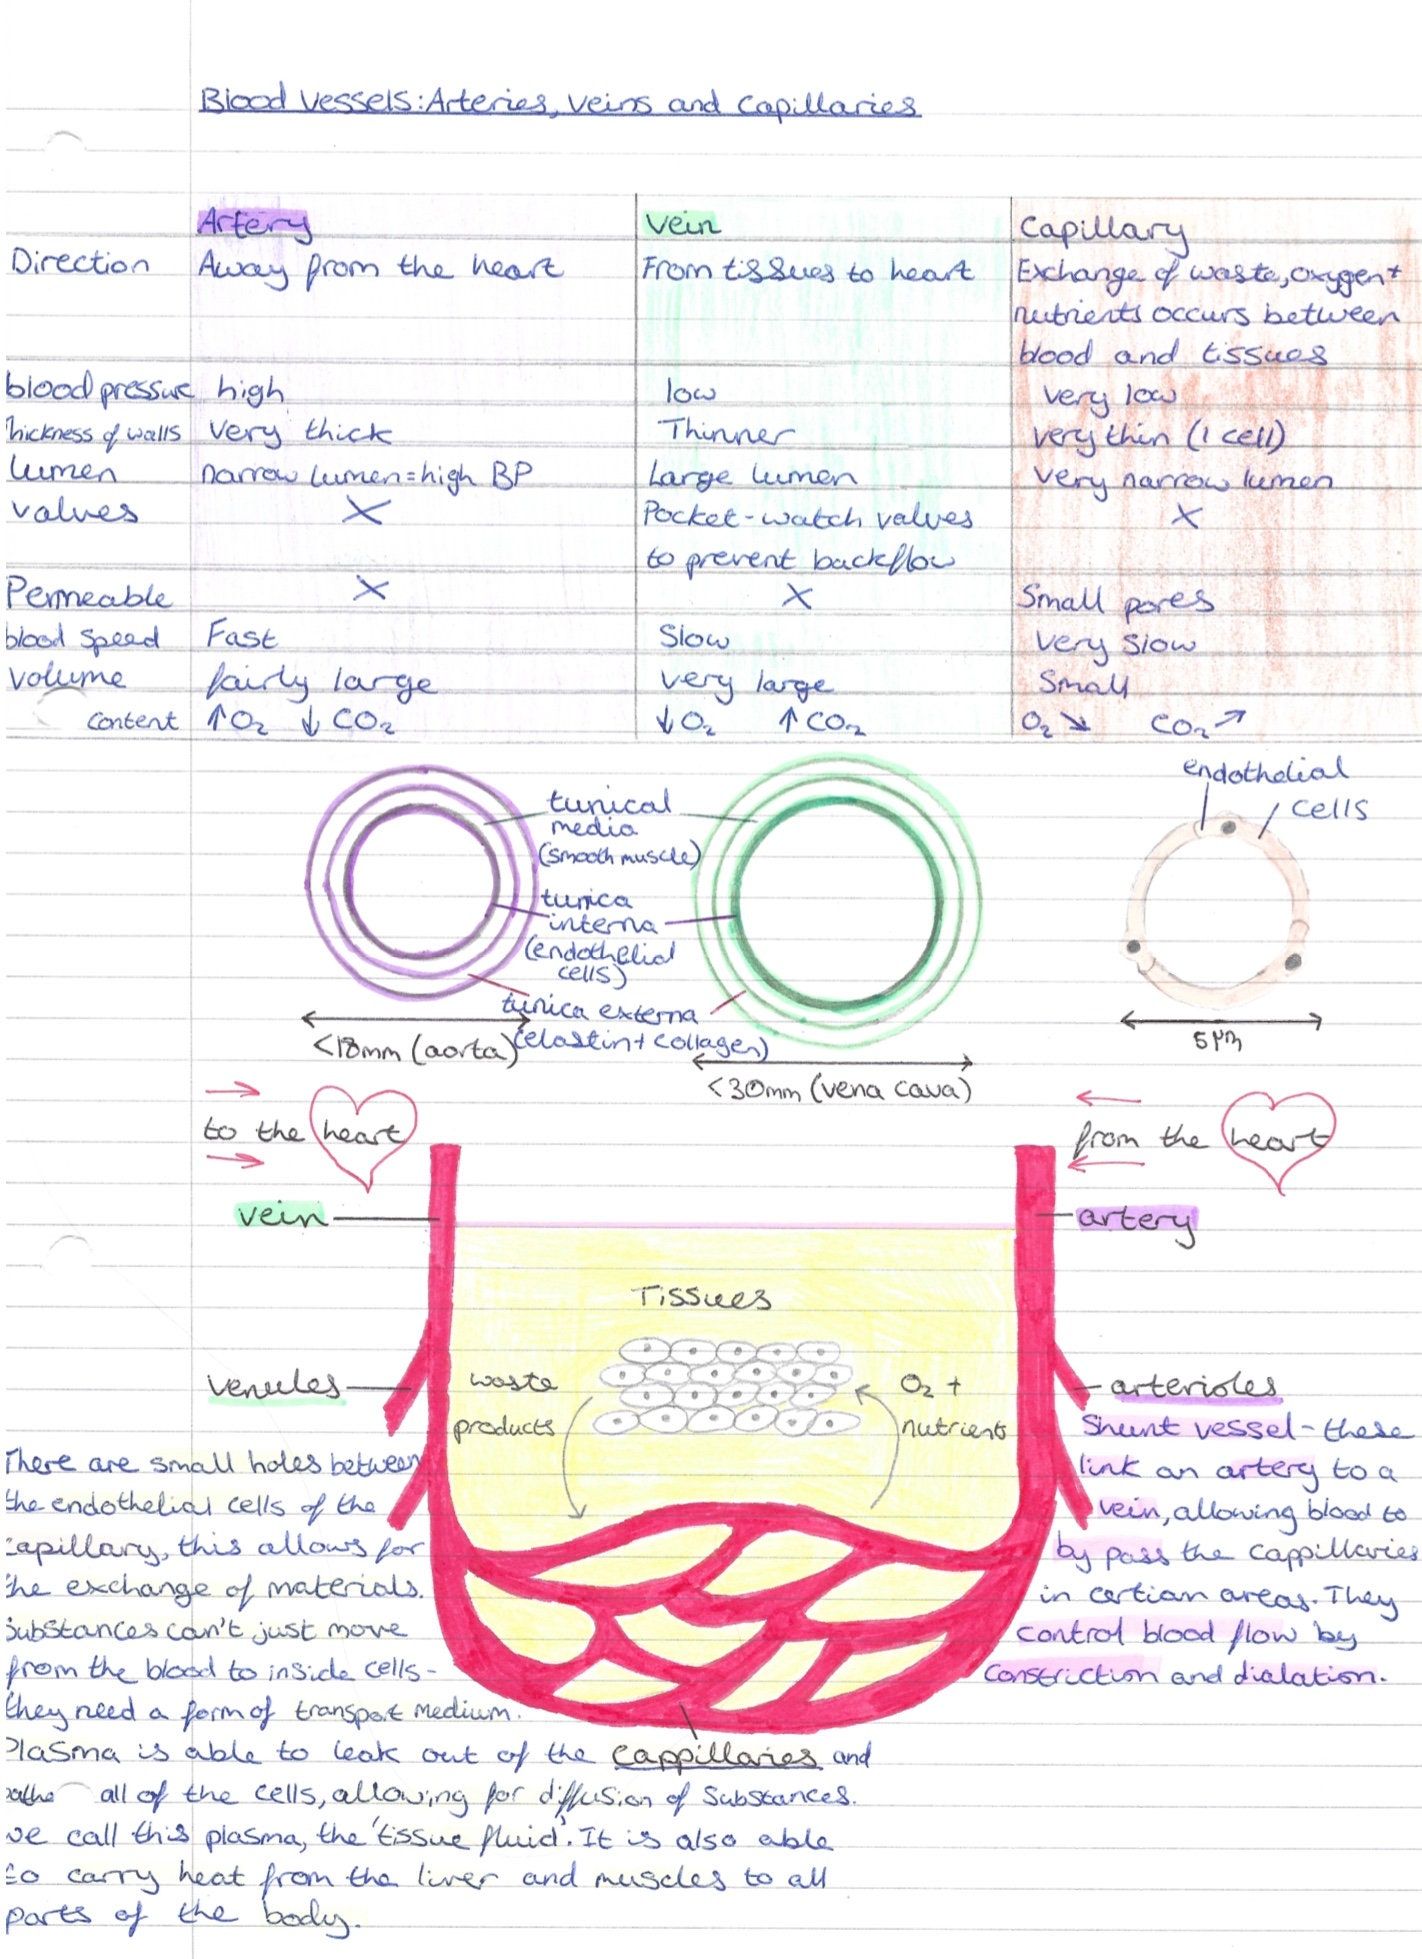 Blood Vessels: Arteries, Veins and Capillaries
Artery Vein Capillary
Direction Away from the heart From tissues to heart Exchange of waste, oxygen +
nutrients occurs between
blood and tissues
blood pressure high low very low
hickness of walls Very thick Thinner very thin (1 cell)
lumen narrow lumen = high BP Large lumen Very narrow lumen
valves X Pocket-watch valves X
to prevent backflow
Permeable X X Small pores
blood speed Fast Slow very slow
volume fairly large very large Small
content ↑O₂ ↓CO₂ ↓O₂ ↑CO₂ O₂↘ CO₂↗
endothelial
cells
tunical
media
(smooth muscle)
tunica
interna
(endothelial
cells)
tunica externa
(elastin + collagen)
<18mm (aorta)
<30mm (vena cava)
5µm
to the heart
from the heart
vein
artery
Tissues
venules
waste
products
O₂ +
nutrients
arterioles
Shunt vessel - these
link an artery to a
vein, allowing blood to
by pass the cappillaries
in certian areas. They
control blood flow by
constriction and dialation.
There are small holes between
the endothelial cells of the
capillary, this allows for
the exchange of materials.
Substances can't just move
from the blood to inside cells -
they need a form of transport medium.
Plasma is able to leak out of the cappillaries and
all of the cells, allowing for diffusion of substances.
we call this plasma, the 'tissue fluid'. It is also able
to carry heat from the liver and muscles to all
parts of the body.